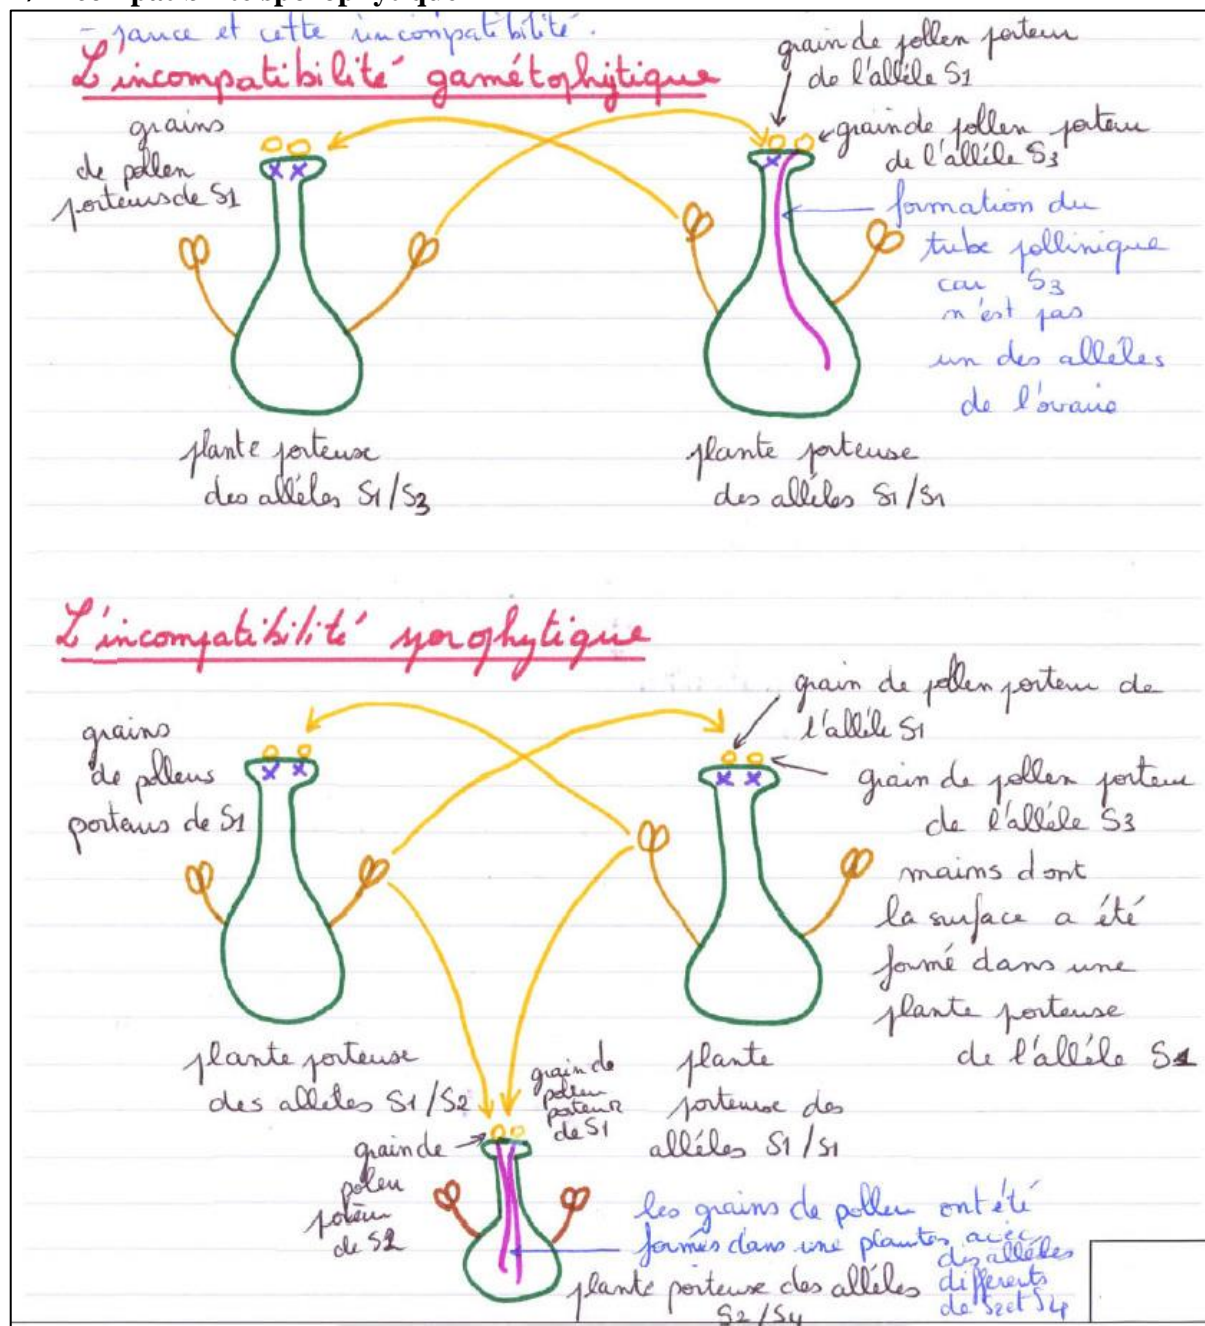 - sance et cette incompatibilité.
L'incompatibilité gamétophytique
grain de pollen porteur
de l'allèle S1
grain de pollen porteur
de l'allèle S3
grains
de pollen
porteurs de S1
formation du
tube pollinique
car S3
n'est pas
un des allèles
de l'ovaire
plante porteuse
des allèles S1/S3
plante porteuse
des allèles S1/S1
L'incompatibilité sporophytique
grain de pollen porteur de
l'allèle S1
grains
de pollens
porteurs de S1
grain de pollen porteur
de l'allèle S3
mains dont
la surface a été
formé dans une
plante porteuse
de l'allèle S1
plante porteuse
des allèles S1/S2
grain de
pollen
porteur
de S1
plante
porteuse des
allèles S1/S1
grain de
polen
poteur
de S2
les grains de pollen ont été
formés dans une plantes avec
des allèles
différents
de S2 et S4
plante porteuse des allèles
S2/S4